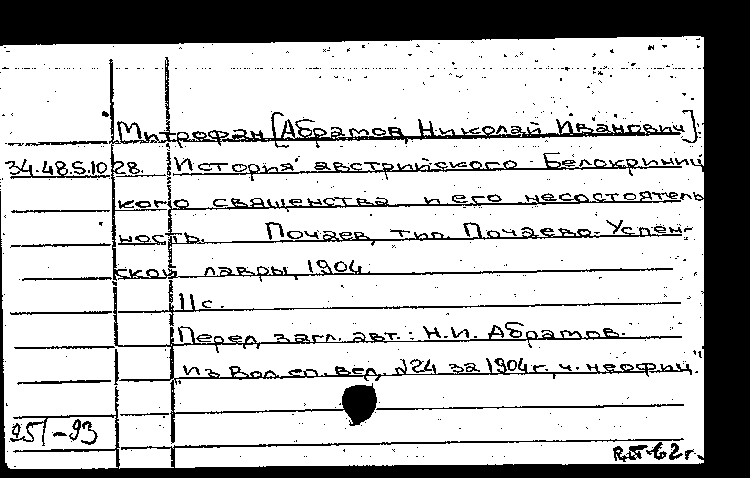 Митрофан [Абрамов, Николай Иванович].
34.48.5.1028. История австрийского Белокриниц
кого священства и его несостоятель
ность. Почаев, тип. Почаево-Успен-
ской лавры, 1904.
11 с.
Перед загл. авт.: Н.И. Абрамов.
"Из Вол. еп. вед. №24 за 1904 г., ч. неофиц."
95/-93
62 г.